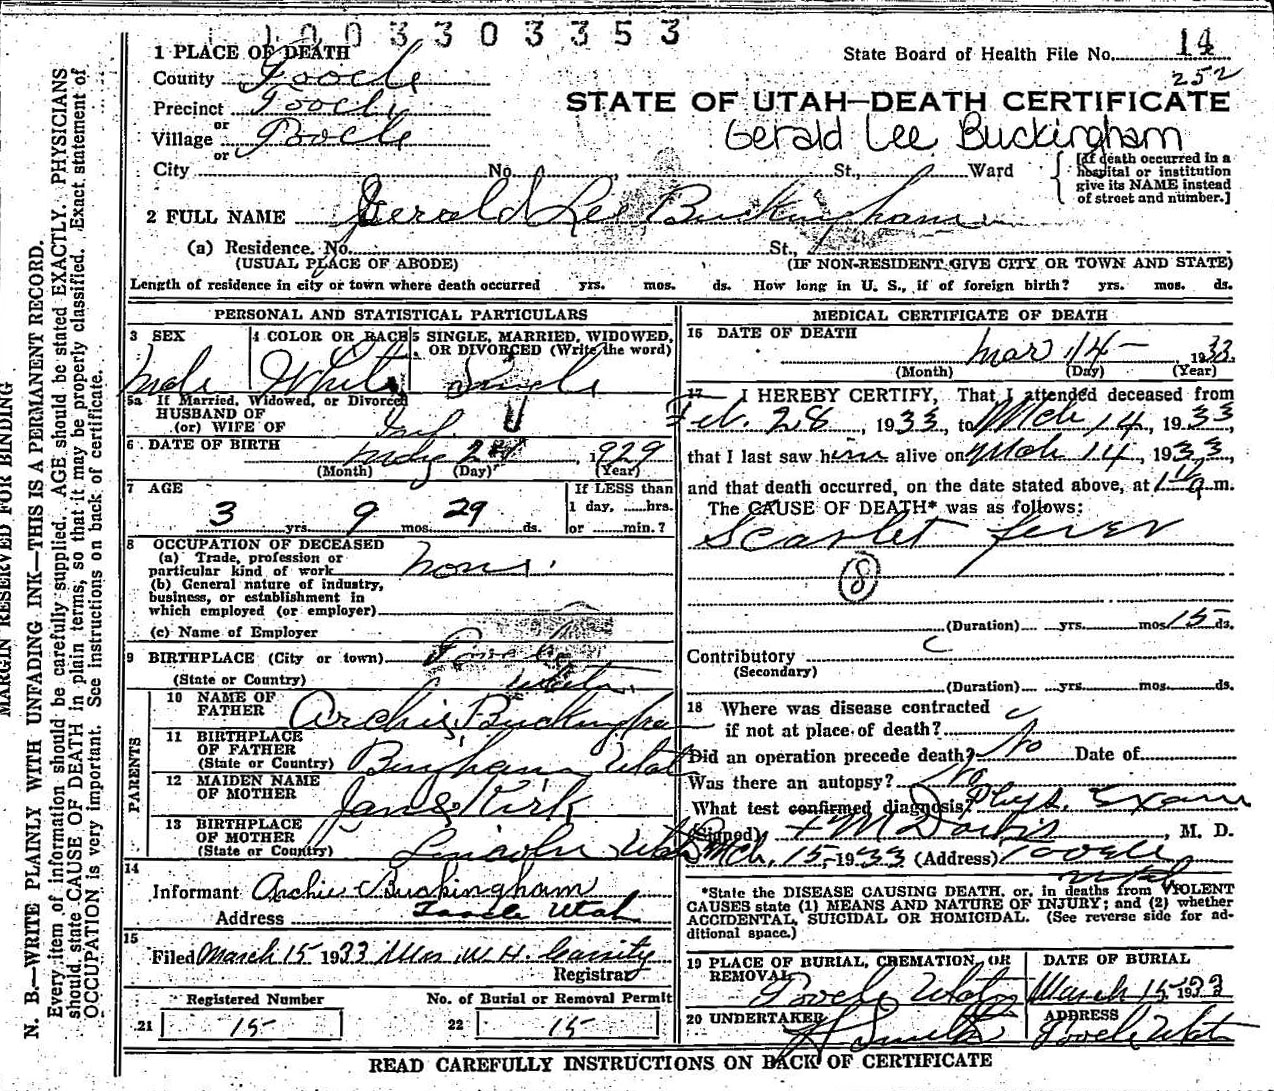 1 0 0 3 3 0 3 3 5 3
1 PLACE OF DEATH
State Board of Health File No. 14
252
County Tooele
Precinct Tooele
or
Village Tooele
or
STATE OF UTAH—DEATH CERTIFICATE
Gerald Lee Buckingham
City No. , St., Ward
[If death occurred in a
hospital or institution
give its NAME instead
of street and number.]
2 FULL NAME Gerald Lee Buckingham
(a) Residence. No. St.,
(USUAL PLACE OF ABODE) (IF NON-RESIDENT GIVE CITY OR TOWN AND STATE)
Length of residence in city or town where death occurred yrs. mos. ds. How long in U. S., if of foreign birth? yrs. mos. ds.
PERSONAL AND STATISTICAL PARTICULARS
3 SEX
Male
4 COLOR OR RACE
White
5 SINGLE, MARRIED, WIDOWED,
OR DIVORCED (Write the word)
Single
5a If Married, Widowed, or Divorced
HUSBAND OF
(or) WIFE OF
6 DATE OF BIRTH
1929
(Month) (Day) (Year)
7 AGE
3 yrs. 9 mos. 29 ds.
If LESS than
1 day, hrs.
or min.?
8 OCCUPATION OF DECEASED
(a) Trade, profession or
particular kind of work none
(b) General nature of industry,
business, or establishment in
which employed (or employer)
(c) Name of Employer
9 BIRTHPLACE (City or town) Tooele
(State or Country) Utah
PARENTS
10 NAME OF
FATHER Archie Buckingham
11 BIRTHPLACE
OF FATHER
(State or Country) Bingham Utah
12 MAIDEN NAME
OF MOTHER Jane Kirk
13 BIRTHPLACE
OF MOTHER
(State or Country) Lincoln Utah
14
Informant Archie Buckingham
Address Tooele Utah
15
Filed March 15 1933 Mrs. W. H. Cassity
Registrar
Registered Number
21 15
No. of Burial or Removal Permit
22 15
MEDICAL CERTIFICATE OF DEATH
16 DATE OF DEATH
Mar 14 – , 1933
(Month) (Day) (Year)
17 I HEREBY CERTIFY, That I attended deceased from
Feb. 28, 1933, to Mch 14, 1933,
that I last saw him alive on Mch 14, 1933,
and that death occurred, on the date stated above, at a m.
The CAUSE OF DEATH* was as follows:
Scarlet fever
8
(Duration) yrs. mos 15 ds.
Contributory
(Secondary)
(Duration) yrs. mos. ds.
18 Where was disease contracted
if not at place of death?
Did an operation precede death? No Date of
Was there an autopsy? No
What test confirmed diagnosis? Phys. Exam
(Signed) M. D.
Mch. 15, 1933 (Address) Tooele
Utah
*State the DISEASE CAUSING DEATH, or, in deaths from VIOLENT
CAUSES state (1) MEANS AND NATURE OF INJURY; and (2) whether
ACCIDENTAL, SUICIDAL OR HOMICIDAL. (See reverse side for ad-
ditional space.)
19 PLACE OF BURIAL, CREMATION, OR
REMOVAL
Tooele Utah
DATE OF BURIAL
March 15 1933
20 UNDERTAKER
ADDRESS
Tooele Utah
READ CAREFULLY INSTRUCTIONS ON BACK OF CERTIFICATE
MARGIN RESERVED FOR BINDING
N. B.—WRITE PLAINLY WITH UNFADING INK—THIS IS A PERMANENT RECORD.
Every item of information should be carefully supplied. AGE should be stated EXACTLY. PHYSICIANS
should state CAUSE OF DEATH in plain terms, so that it may be properly classified. Exact statement of
OCCUPATION is very important. See instructions on back of certificate.